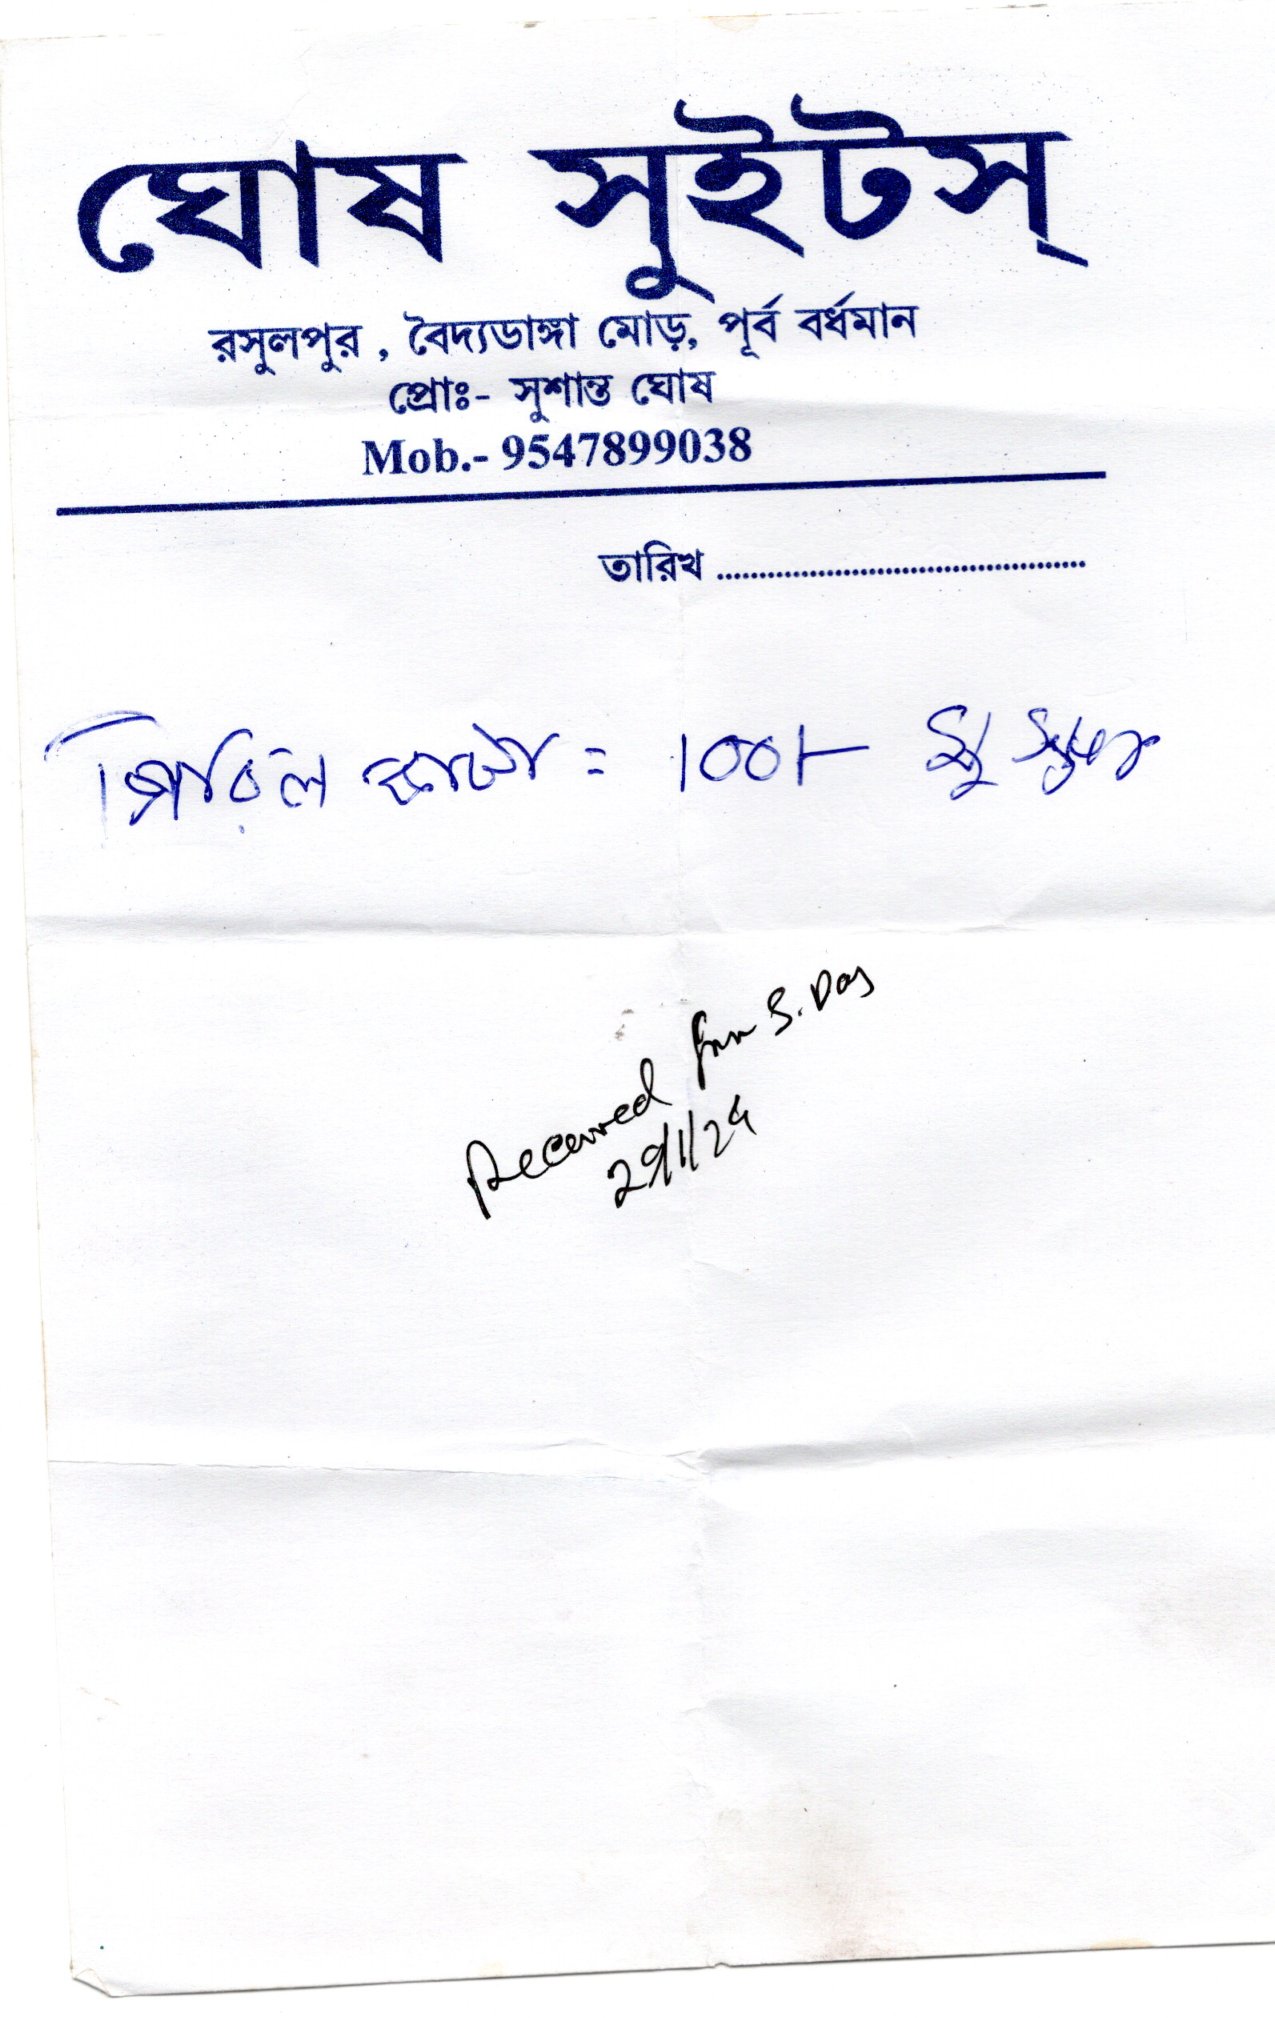 ঘোষ সুইটস্
রসুলপুর , বৈদ্যডাঙ্গা মোড়, পূর্ব বর্ধমান
প্রোঃ- সুশান্ত ঘোষ
Mob.- 9547899038
তারিখ ..............................................
= 100/-
Received from S. Das
29/1/24